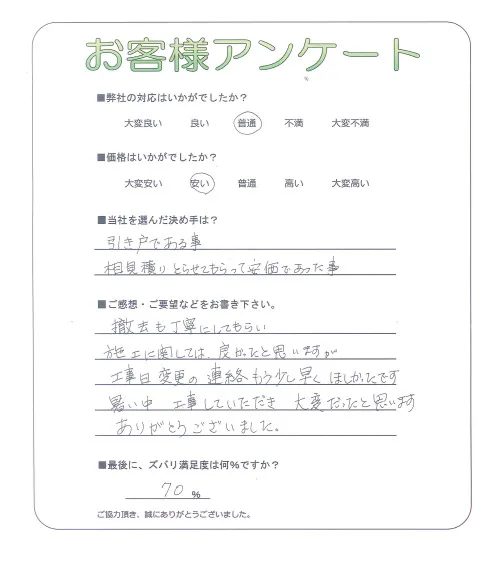 お客様アンケート
■弊社の対応はいかがでしたか？
大変良い 良い 普通 不満 大変不満
■価格はいかがでしたか？
大変安い 安い 普通 高い 大変高い
■当社を選んだ決め手は？
引き戸である事
相見積りとらせてもらって安価であった事
■ご感想・ご要望などをお書き下さい。
撤去も丁寧にしてもらい
施工に関しては、良かったと思いますが
工事日変更の連絡もう少し早くほしかったです
暑い中 工事していただき 大変だったと思います
ありがとうございました。
■最後に、ズバリ満足度は何％ですか？
70 ％
ご協力頂き、誠にありがとうございました。